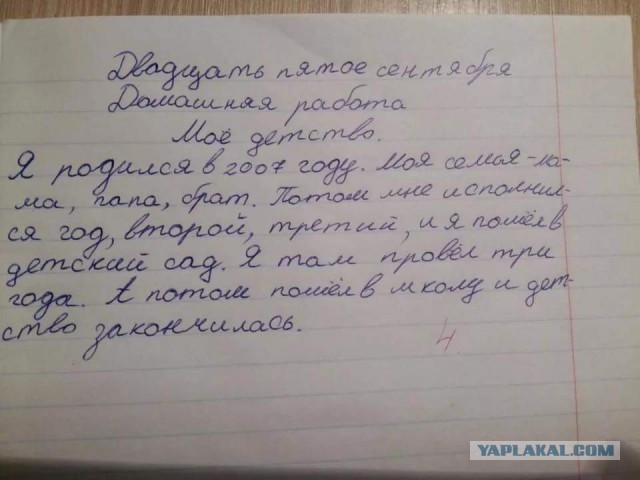 Двадцать пятое сентября
Домашняя работа
Моё детство.
Я родился в 2007 году. Моя семья - ма-
ма, папа, брат. Потом мне исполнил-
ся год, второй, третий, и я пошёл в
детский сад. Я там провёл три
года. А потом пошёл в школу и дет-
ство закончилась.
4
YAPLAKAL.COM